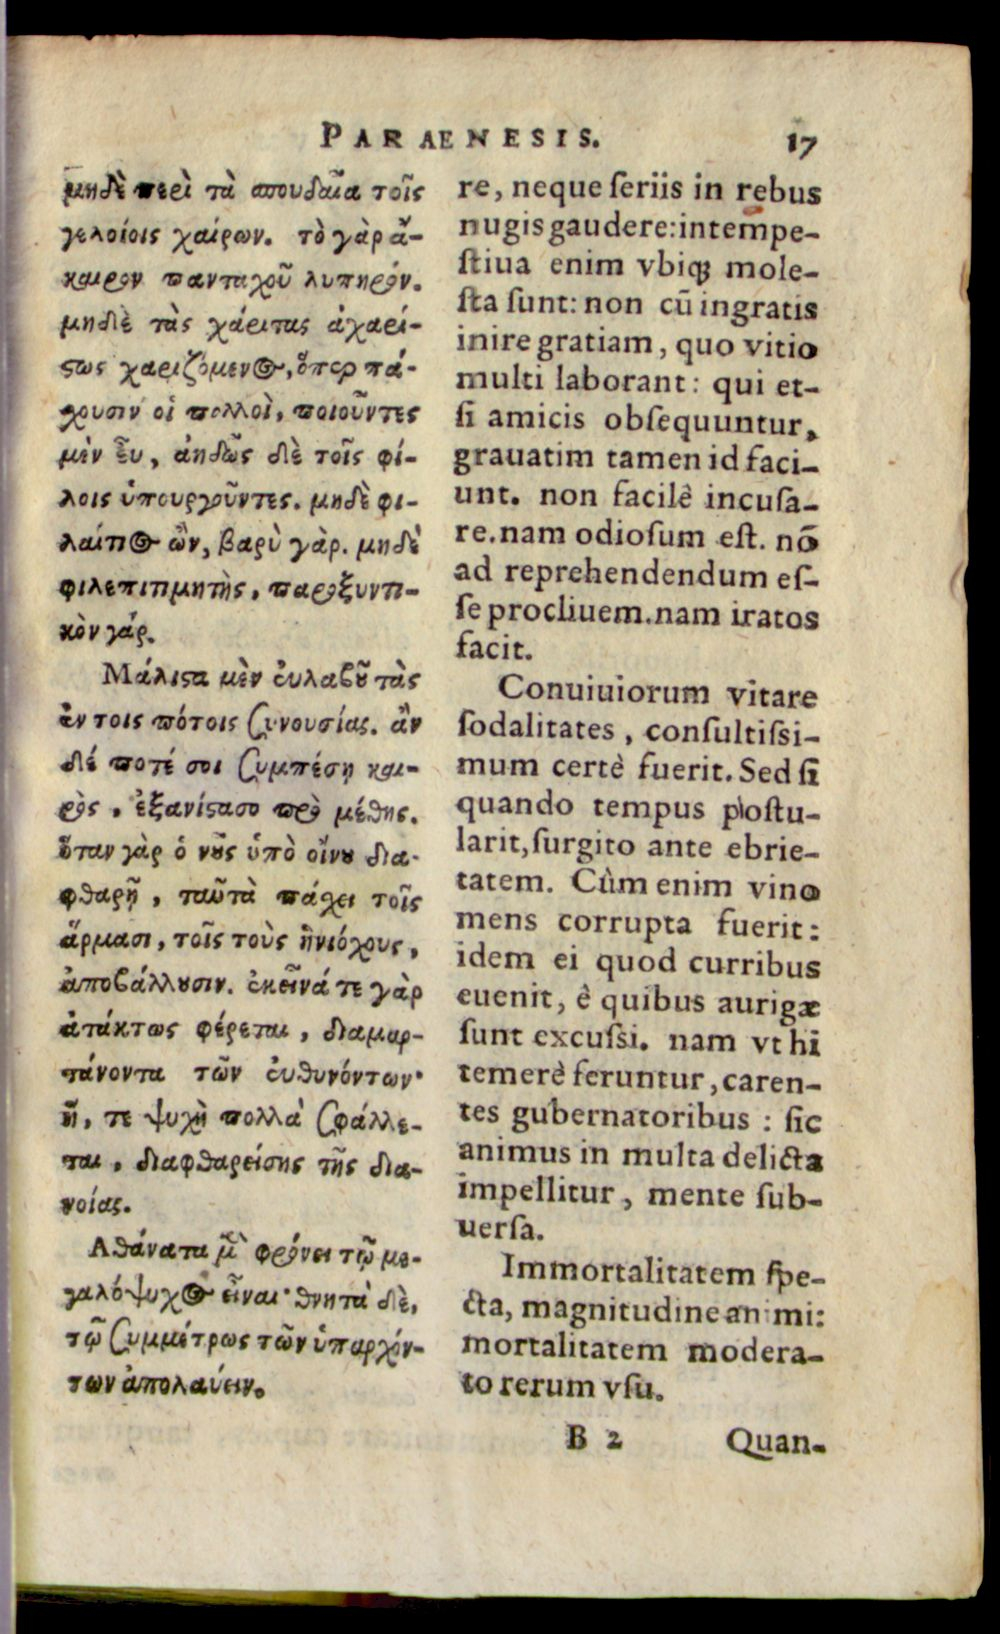 PARAENESIS. 17
μηδὲ περὶ τὰ σπουδαῖα τοῖς
γελοίοις χαίρων. τὸ γὰρ ἄ-
καιρον πανταχοῦ λυπηρόν.
μηδὲ τὰς χάριτας ἀχαρί-
ϛως χαριζόμενος, ὅπερ πά-
χουσιν οἱ πολλοὶ, ποιοῦντες
μὲν εὖ, ἀηδῶς δὲ τοῖς φί-
λοις ὑπουργοῦντες. μηδὲ φι-
λαίτιος ὢν, βαρὺ γάρ. μηδὲ
φιλεπιτιμητὴς, παροξυντι-
κὸν γάρ.
Μάλιϛα μὲν ἐυλαβοῦ τὰς
ἐν τοις πότοις συνουσίας. ἂν
δέ ποτέ σοι συμπέσῃ και-
ρὸς, ἐξανίϛασο πρὸ μέθης.
ὅταν γὰρ ὁ νοῦς ὑπὸ οἴνου δια-
φθαρῇ, ταῦτὰ πάχει τοῖς
ἅρμασι, τοῖς τοὺς ἡνιόχους,
ἀποβάλλουσιν. ἐκεῖνά τε γὰρ
ἀτάκτως φέρεται, διαμαρ-
τάνοντα τῶν ἐυθυνόντων·
ἥ, τε ψυχὴ πολλὰ σφάλλε-
ται, διαφθαρείσης τῆς δια-
νοίας.
Αθάνατα μὲν φρόνει τῷ με-
γαλόψυχος εἶναι· θνητὰ δὲ,
τῷ συμμέτρως τῶν ὑπαρχόν-
των ἀπολαύειν.
re, neque ſeriis in rebus
nugis gaudere: intempe-
ſtiua enim vbiq; mole-
ſta ſunt: non cū ingratis
inire gratiam, quo vitio
multi laborant: qui et-
ſi amicis obſequuntur,
grauatim tamen id faci-
unt. non facilè incuſa-
re. nam odioſum eſt. nō
ad reprehendendum eſ-
ſe procliuem. nam iratos
facit.
Conuiuiorum vitare
ſodalitates, conſultiſsi-
mum certè fuerit. Sed ſi
quando tempus poſtu-
larit, ſurgito ante ebrie-
tatem. Cùm enim vino
mens corrupta fuerit:
idem ei quod curribus
euenit, è quibus aurigæ
ſunt excuſsi. nam vt hi
temerè feruntur, caren-
tes gubernatoribus: ſic
animus in multa delicta
impellitur, mente ſub-
uerſa.
Immortalitatem ſpe-
cta, magnitudine animi:
mortalitatem modera-
to rerum vſu.
B 2 Quan-